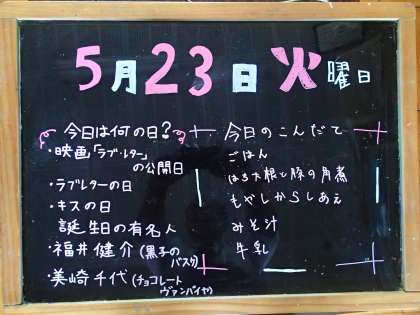 5月23日 火曜日
今日は何の日?
・映画「ラブ・レター」
の公開日
・ラブレターの日
・キスの日
誕生日の有名人
・福井健介(黒子の
バスケ)
・美崎千代(チョコレート
ヴァンパイヤ)
今日のこんだて
ごはん
はち大根と豚の角煮
もやしからしあえ
みそ汁
牛乳